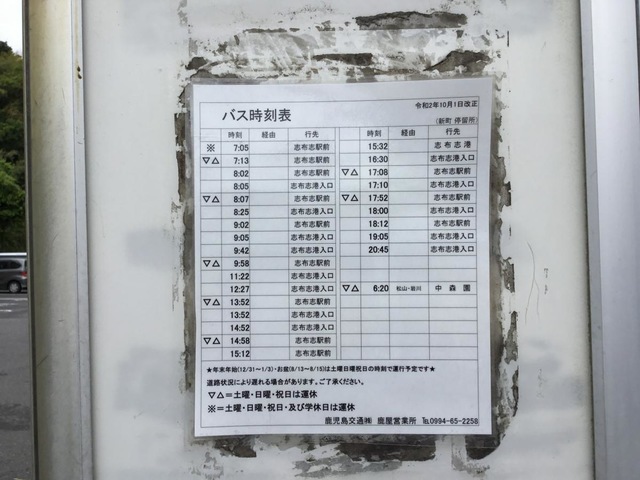 バス時刻表
令和2年10月1日改正
(新町 停留所)
時刻 経由 行先
※ 7:05 志布志駅前
▽△ 7:13 志布志駅前
8:02 志布志駅前
8:05 志布志港入口
▽△ 8:07 志布志駅前
8:25 志布志港入口
9:02 志布志駅前
9:05 志布志港入口
9:42 志布志港入口
▽△ 9:58 志布志駅前
11:22 志布志港入口
12:27 志布志港入口
▽△ 13:52 志布志駅前
13:52 志布志港入口
14:52 志布志港入口
▽△ 14:58 志布志駅前
15:12 志布志駅前
時刻 経由 行先
15:32 志布志港
16:30 志布志港入口
▽△ 17:08 志布志駅前
17:10 志布志港入口
▽△ 17:52 志布志駅前
18:00 志布志港入口
18:12 志布志駅前
19:05 志布志港入口
20:45 志布志港入口
▽△ 6:20 松山・岩川 中森園
★年末年始(12/31～1/3)・お盆(8/13～8/15)は土曜日曜祝日の時刻で運行予定です★
道路状況により遅れる場合があります。ご了承ください。
▽△=土曜・日曜・祝日は運休
※=土曜・日曜・祝日・及び学休日は運休
鹿児島交通㈱ 鹿屋営業所 ℡0994-65-2258